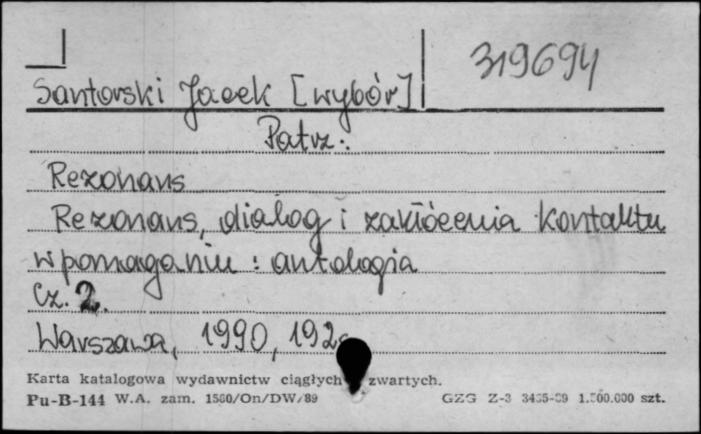 319694
Santorski Jacek [wybór]
Patrz:
Rezonans
Rezonans, dialog i zakłócenia kontaktu
w pomaganiu : antologia
Cz. 2.
Warszawa, 1990, 192
Karta katalogowa wydawnictw ciągłych zwartych.
Pu-B-144 W.A. zam. 1560/On/DW/89 GZG Z-3 1.500.000 szt.